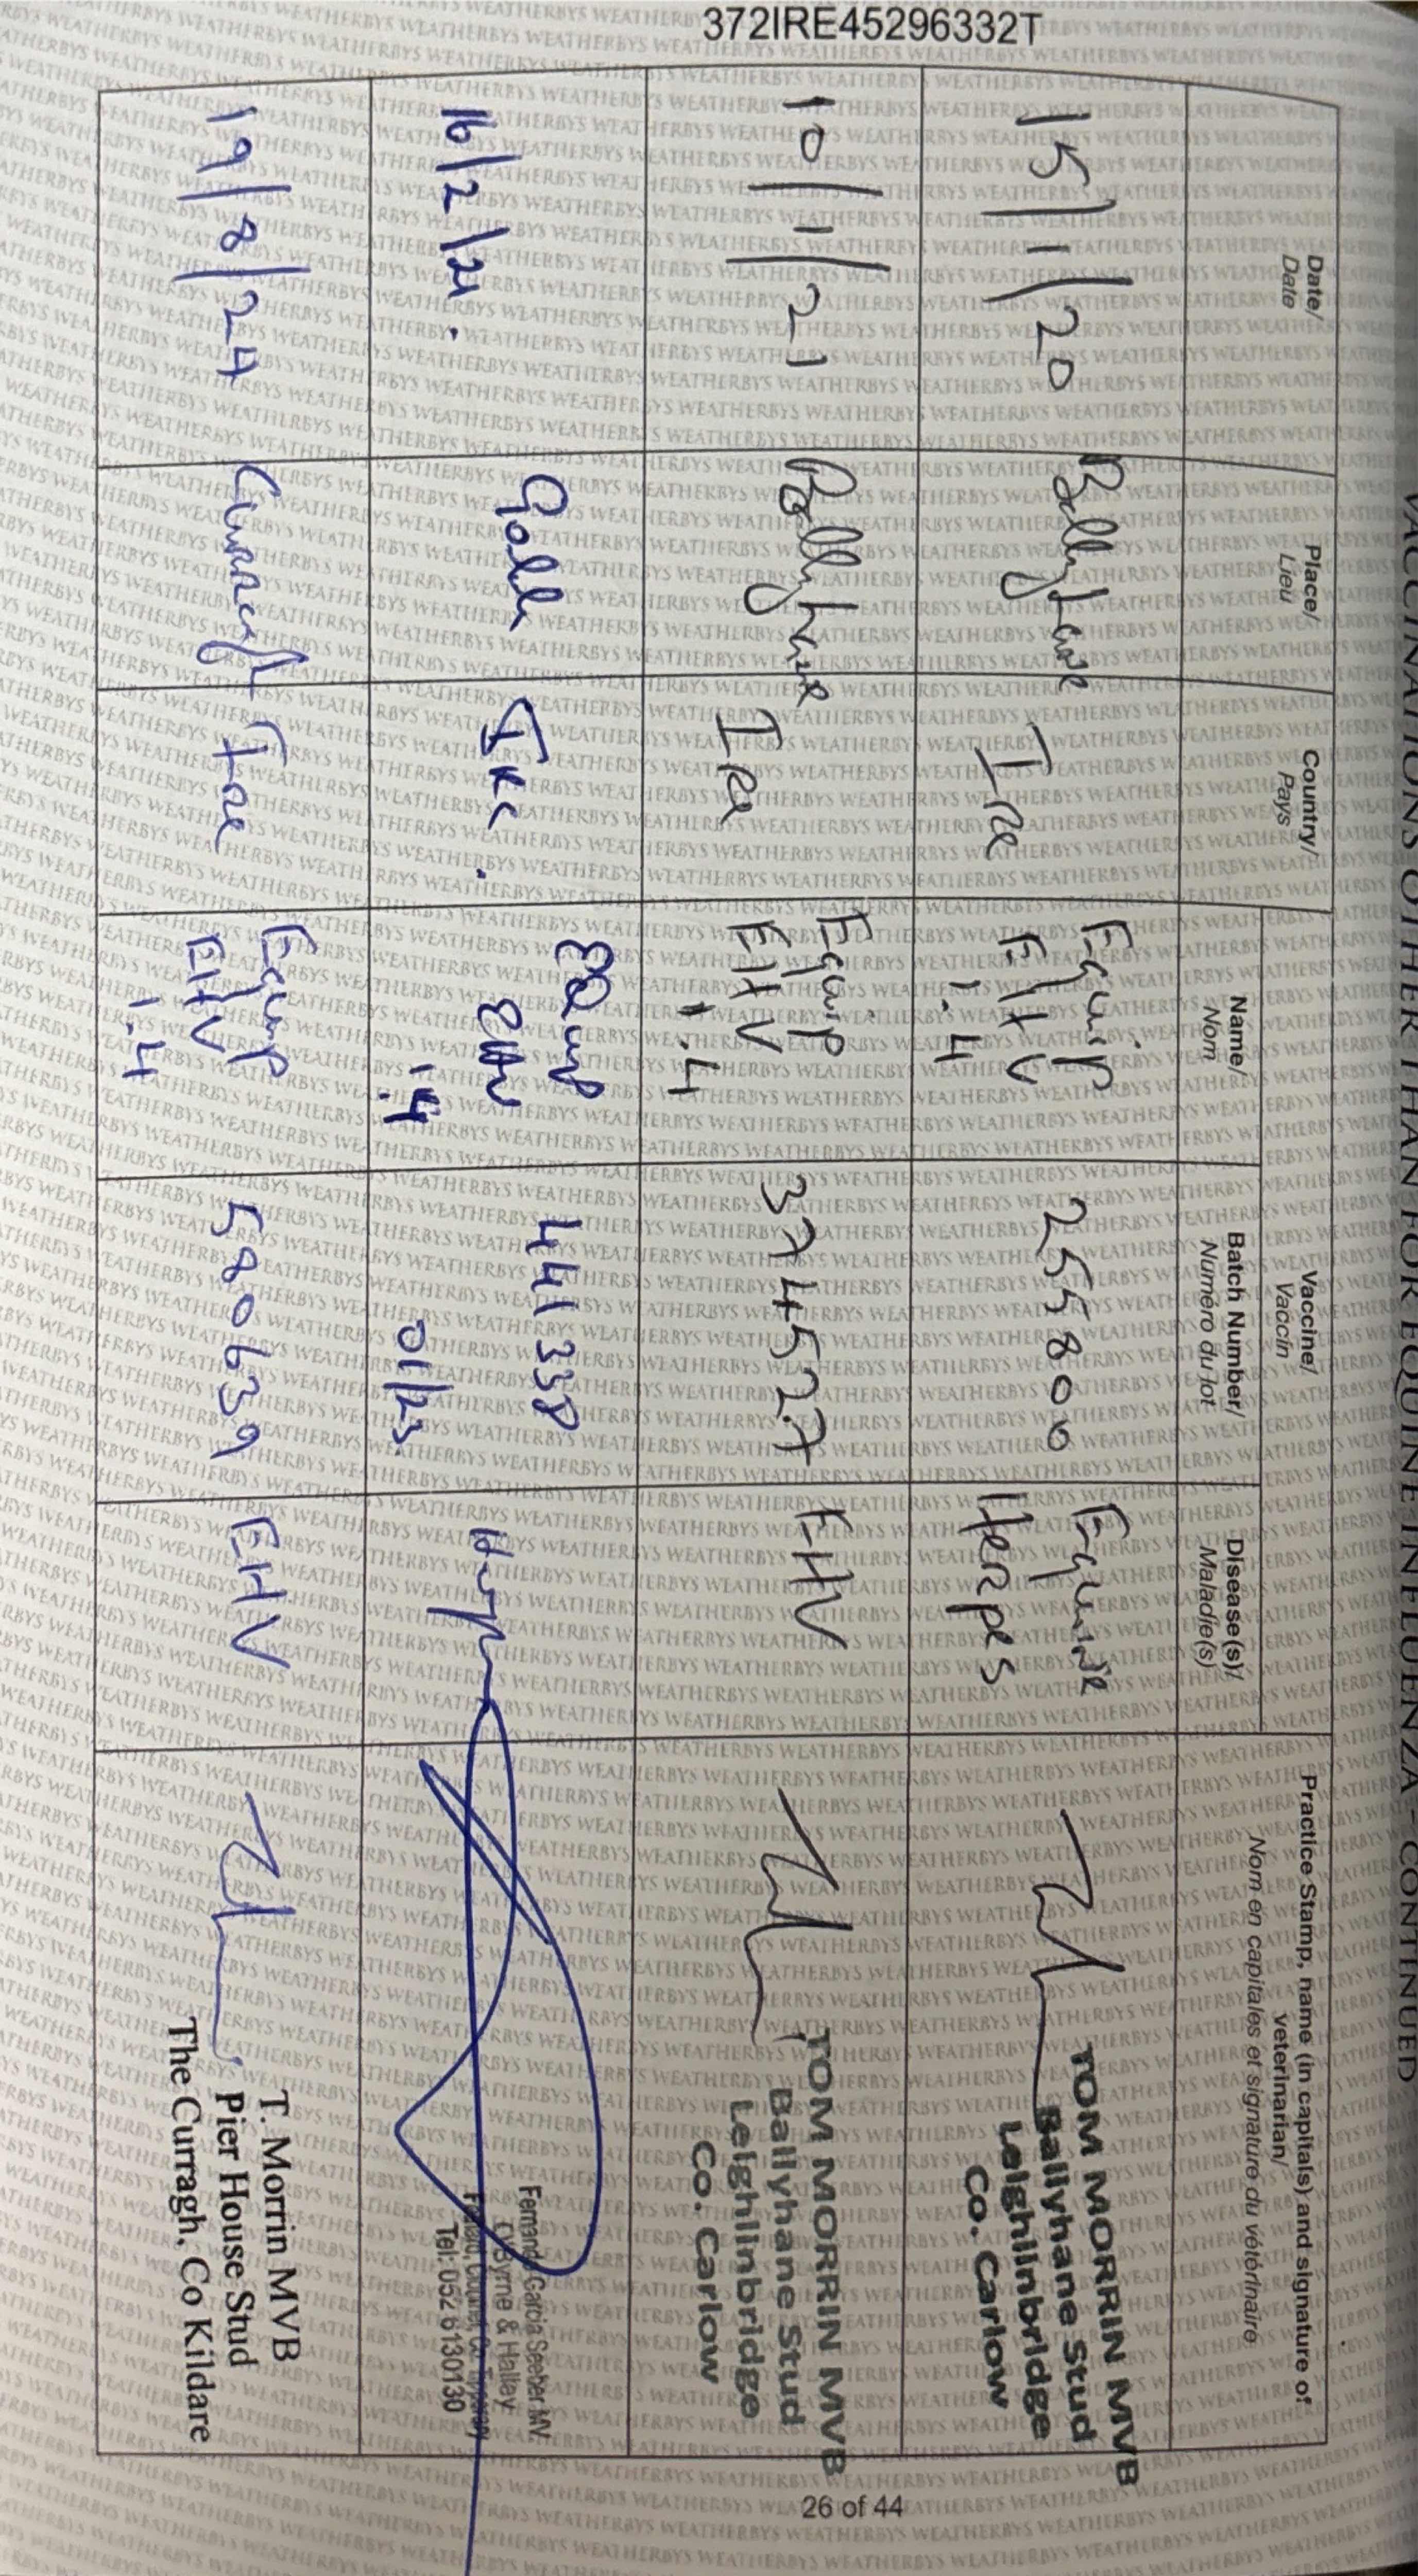 372IRE45296332T
VACCINATIONS OTHER THAN FOR EQUINE INFLUENZA – CONTINUED
Date/
Date
Place/
Lieu
Country/
Pays
Vaccine/
Vaccin
Name/
Nom
Batch Number/
Numéro du lot
Disease(s)/
Maladie(s)
Practice Stamp, name (in capitals) and signature of
veterinarian/
Nom en capitales et signature du vétérinaire
15/1/20
Ballyhane
Ire
Equip
EHV
1.4
255800
Equine
Herpes
TOM MORRIN MVB
Ballyhane Stud
Leighlinbridge
Co. Carlow
10/1/21
Ballyhane
Ire
Equip
EHV
1.4
374527
EHV
TOM MORRIN MVB
Ballyhane Stud
Leighlinbridge
Co. Carlow
16/2/21.
Ire.
EQuip
EHV
1.4
441338
01/23.
Garcia
Byrne & Halley
Tel: 052 6130130
19/8/24
Curragh
Ire
Equip
EHV
1.4
580639
EHV
T. Morrin MVB
Pier House Stud
The Curragh, Co Kildare
26 of 44